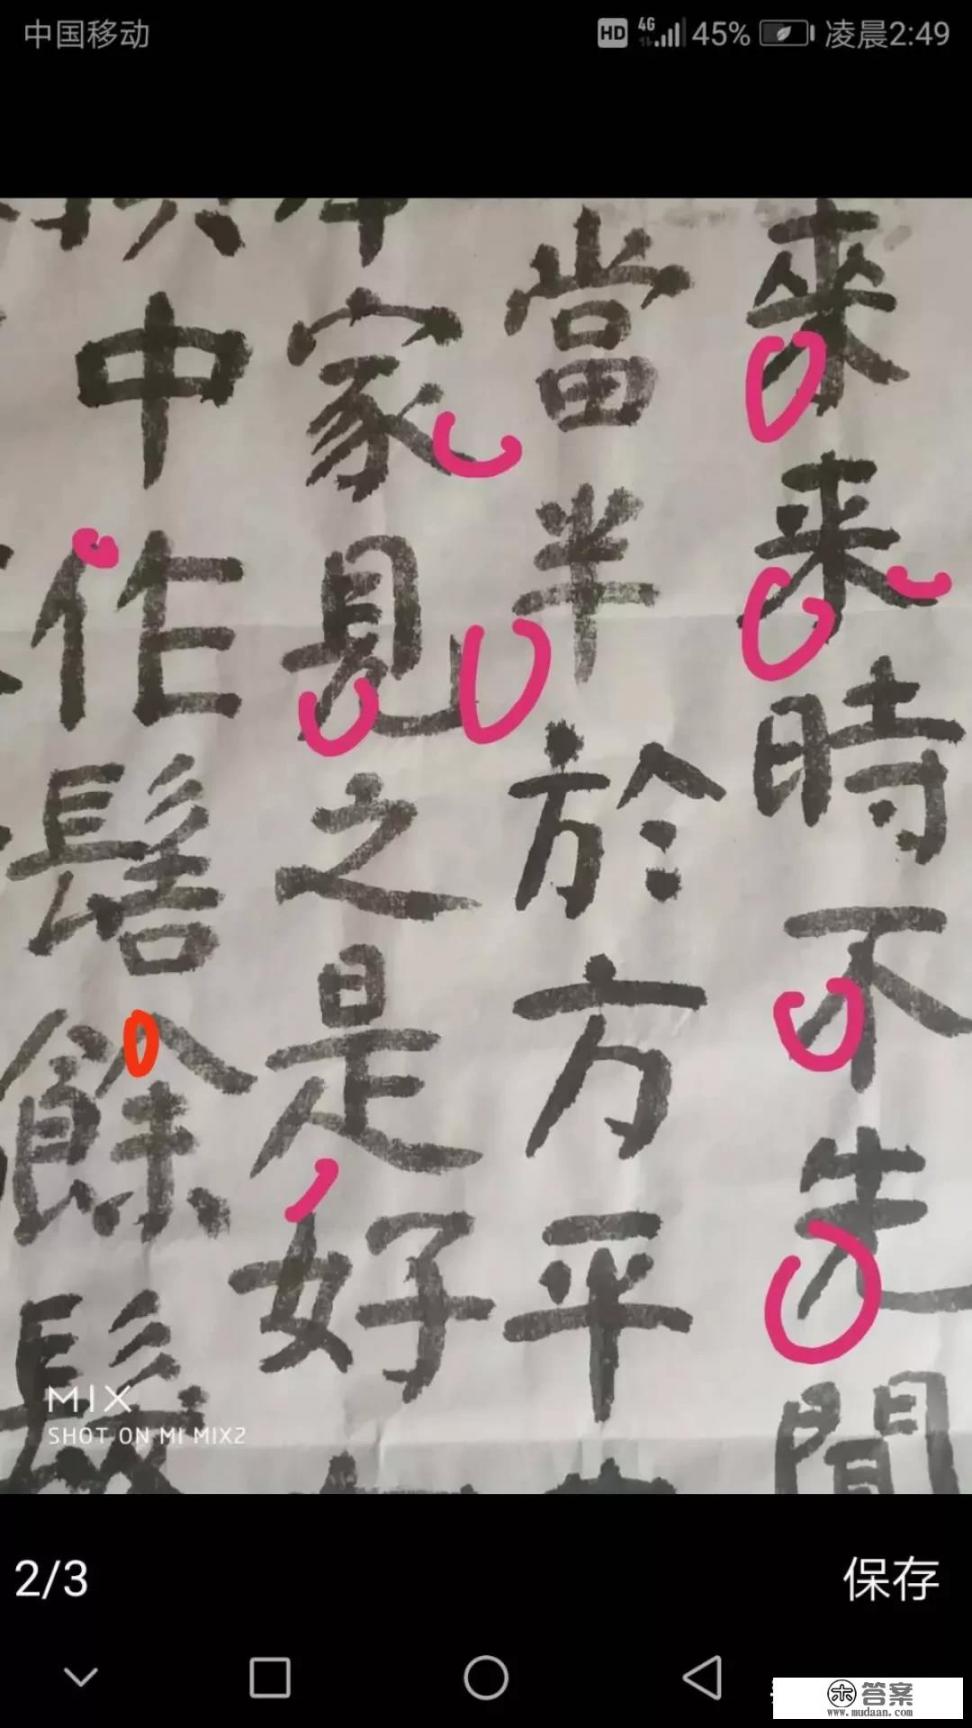 中国移动
HD 4G 45% 凌晨2:49
來来時不先聞
當半於方平
家見之是好
中作髻餘髮
MIX
SHOT ON MI MIX2
2/3
保存
答案
www.mudaan.com